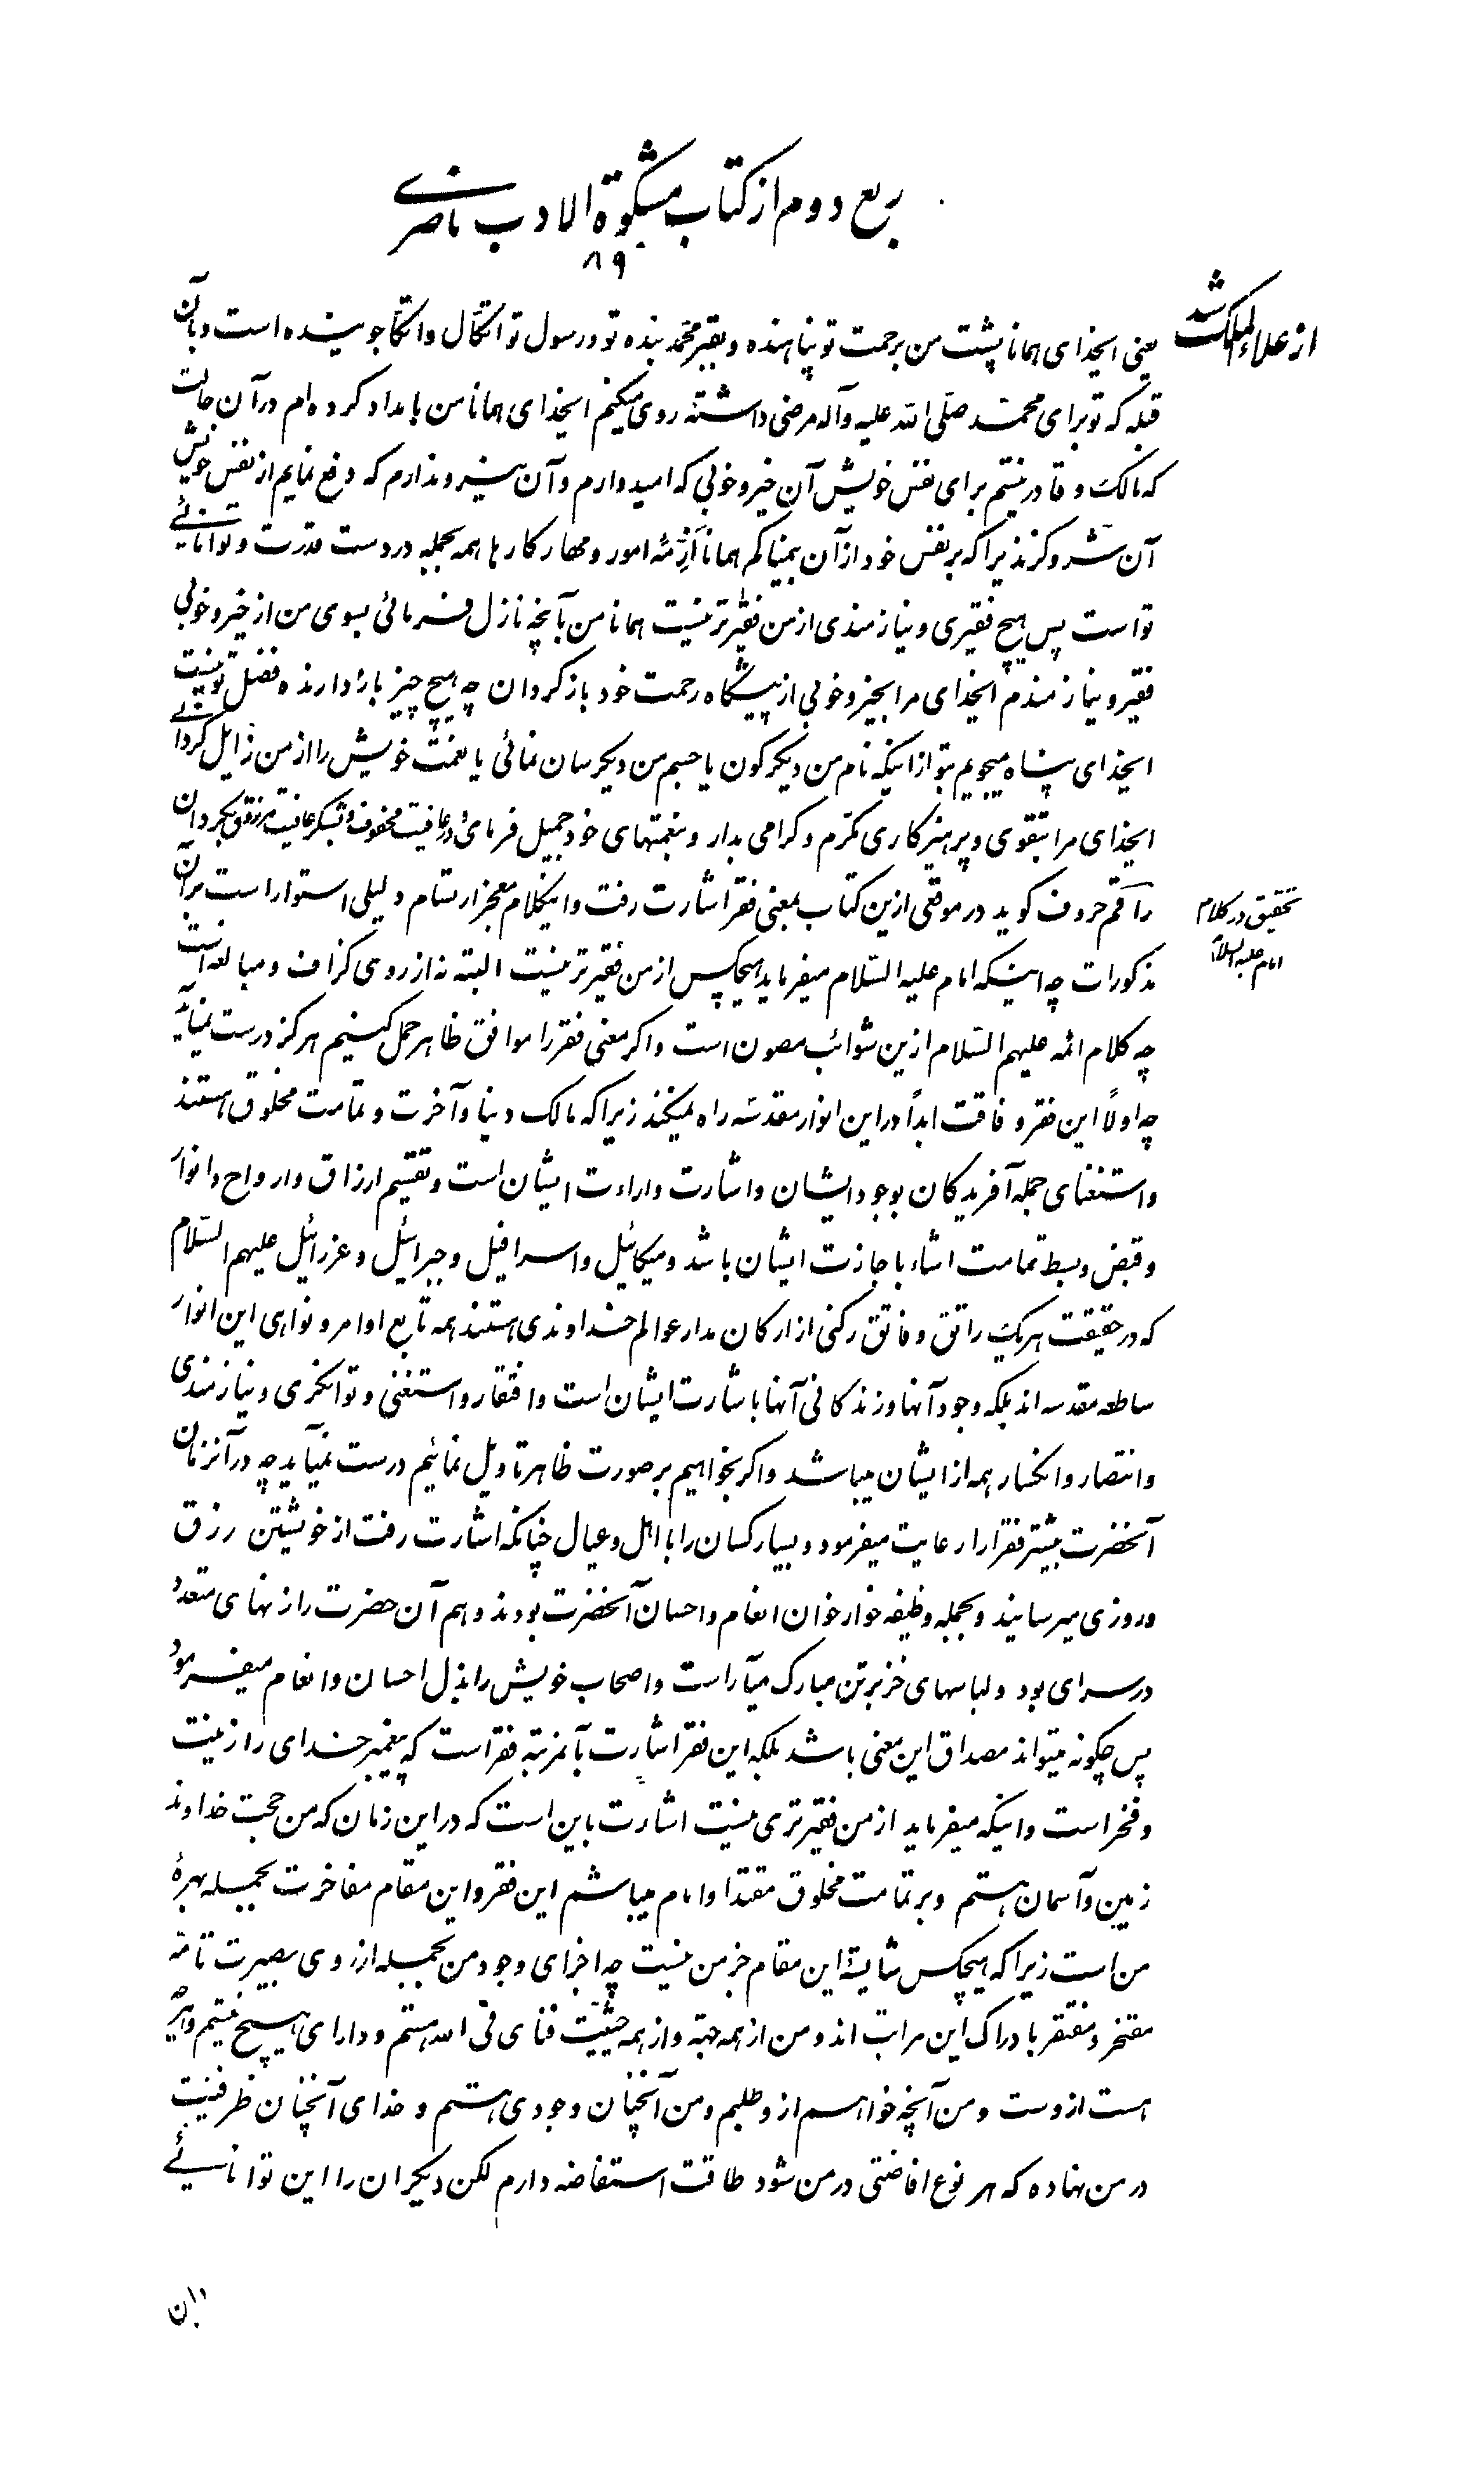 ربع دوم از کتاب مشکوة الادب ناصری
۸۹
از علاء الملک شد
یعنی ایخدای همانا پشت من برحمت تو پناهنده و بقبر محمّد بنده تو و رسول تو اتکال و اتکا جوینده است و بآن
قبله که تو برای محمّد صلّی الله علیه وآله مرضی داشته روی میکنم ایخدای همانا من بامداد کرده‌ام در آن حالت
که مالک و قادر نیستم برای نفس خویش آن خیر و خوبی که امیدوارم و آن نیرو ندارم که دفع نمایم از نفس خویش
آن شر و گزند زیرا که بر نفس خود از آن بیمناکم همانا ازِمّهٔ امور و مهار کارها همه بجمله در دست قدرت و توانائی
تواست پس هیچ فقیری و نیازمندی از من فقیرتر نیست همانا من بآنچه نازل فرمائی بسوی من از خیر و خوبی
فقیر و نیازمندم ایخدای مرا بخیر و خوبی از پیشگاه رحمت خود بازگردان چه هیچ چیز باز دارنده فضل تو نیست
ایخدای پناه میجویم بتو از اینکه نام من دیگرگون یا جسم من دیگرسان نمائی یا نعمت خویش را از من زایل گردانی
ایخدای مرا بتقوی و پرهیزکاری مکرّم و گرامی بدار و بنعمتهای خود جمیل فرمای و در عافیت محفوف و بشکر عافیت مرزوق بگردان
راقم حروف گوید در موقعی ازین کتاب بمعنی فقر اشارت رفت و اینکلام معجز ارتسام دلیلی استوار است بر آن
تحقیق در کلام
امام علیه السلام
مذکورات چه اینکه امام علیه السّلام میفرماید هیچکس از من فقیرتر نیست البته نه از روی گزاف و مبالغه است
چه کلام ائمه علیهم السّلام ازین شوائب مصون است و اگر معنی فقر را موافق ظاهر حمل کنیم هرگز درست نیاید
چه اولاً این فقر و فاقت ابداً در این انوار مقدسّه راه نمیکند زیرا که مالک دنیا و آخرت و تمامت مخلوق هستند
و استغنای جمله آفریدگان بوجود ایشان و اشارت و ارادت ایشان است و تقسیم ارزاق و ارواح و انوار
و قبض و بسط تمامت اشاء باجازت ایشان باشد و میکائیل و اسرافیل و جبرائیل و عزرائیل علیهم السّلام
که در حقیقت هریک راتق و فاتق رکنی از ارکان مدار عوالم خداوندی هستند همه تابع اوامر و نواهی این انوار
ساطعه مقدسه اند بلکه وجود آنها و زندگانی آنها باشارت ایشان است و افتقار و استغنی و توانگری و نیازمندی
و انتصار و انکسار همه از ایشان میباشد و اگر بخواهیم بر صورت ظاهر تاویل نمائیم درست نمیآید چه در آنزمان
آنحضرت بیشتر فقرا را رعایت میفرمود و بسیار کسان را با اهل و عیال چنانکه اشارت رفت از خویشتن رزق
و روزی میرسانید و بجمله وظیفه خوار خوان انعام و احسان آنحضرت بودند و هم آن حضرت را زنهای متعدد
در سرای بود و لباسهای خز بر تن مبارک میآراست و اصحاب خویش را بذل احسان و انعام میفرمود
پس چگونه میتواند مصداق این معنی باشد بلکه این فقر اشارت بآنمرتبه فقر است که پیغمبر خدای را زینت
و فخر است و اینکه میفرماید از من فقیرتری نیست اشارت باین است که در این زمان که من حجت خداوند
زمین و آسمان هستم و بر تمامت مخلوق مقتدا و امام میباشم این فقر و این مقام مفاخرت بجمله بهرهٔ
من است زیرا که هیچکس شایستهٔ این مقام جز من نیست چه اجزای وجود من بجمله از روی بصیرت تامّه
مفتخر و مفتقر بادراک این مراتب اند و من از همه جهة و از همه حیثیّت فنای فی الله هستم و دارای هیچ نیستم و هرچه
هست ازوست و من آنچه خواهم از و طلبم و من آنچنان وجودی هستم و خدای آنچنان ظرفیت
در من نهاده که هر نوع افاضتی در من شود طاقت استفاضه دارم لکن دیگران را این توانائی